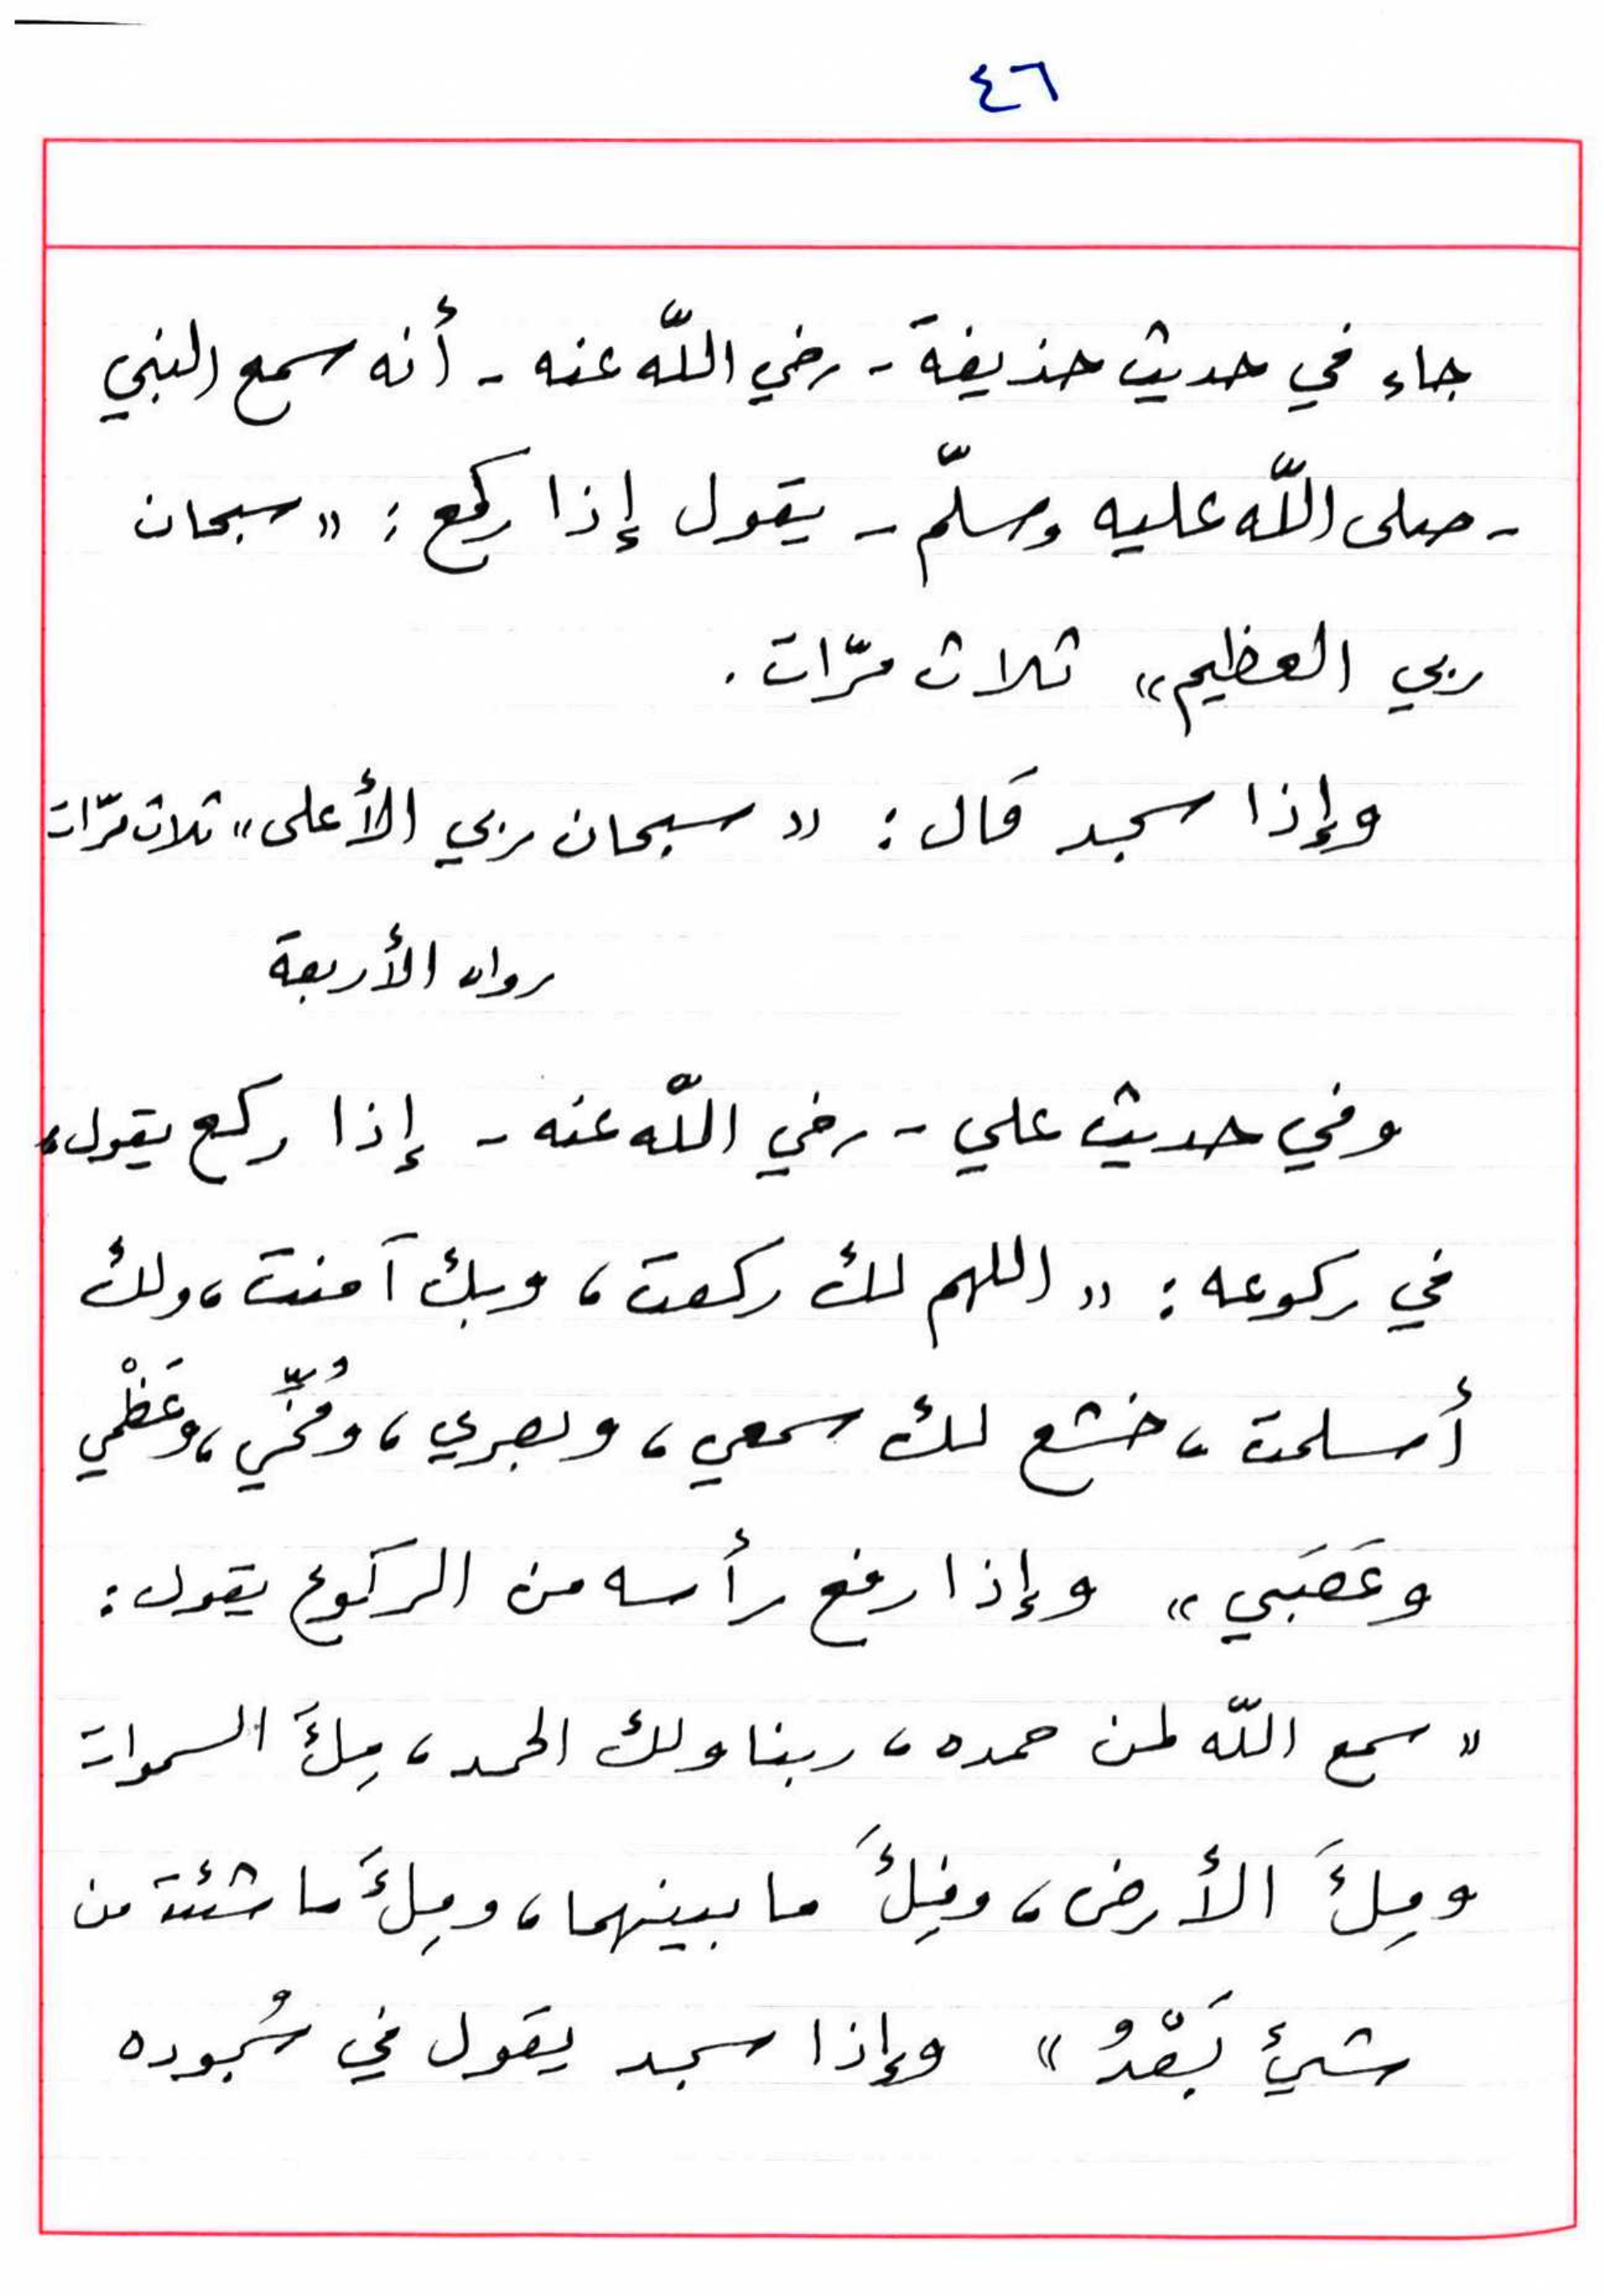 ٤٦
جاء في حديث حذيفة - رضي اللّه عنه - أنه سمع النبي
- صلى اللّه عليه وسلّم - يقول إذا ركع : «سبحان
ربي العظيم» ثلاث مرّات .
وإذا سجد قال : «سبحان ربي الأعلى» ثلاث مرّات
رواه الأربعة
وفي حديث علي - رضي اللّه عنه - إذا ركع يقول،
في ركوعه : «اللهم لك ركعت، وبك آمنت، ولك
أسلمت، خشع لك سمعي، وبصري، ومُخِّي، وعَظْمي
وعَصَبي» وإذا رفع رأسه من الركوع يقول :
«سمع اللّه لمن حمده، ربنا ولك الحمد، مِلأَ السموات
ومِلأَ الأرض، ومِلأَ ما بينهما، ومِلأَ ما شئت من
شيئ بَعْدُ» وإذا سجد يقول في سُجوده